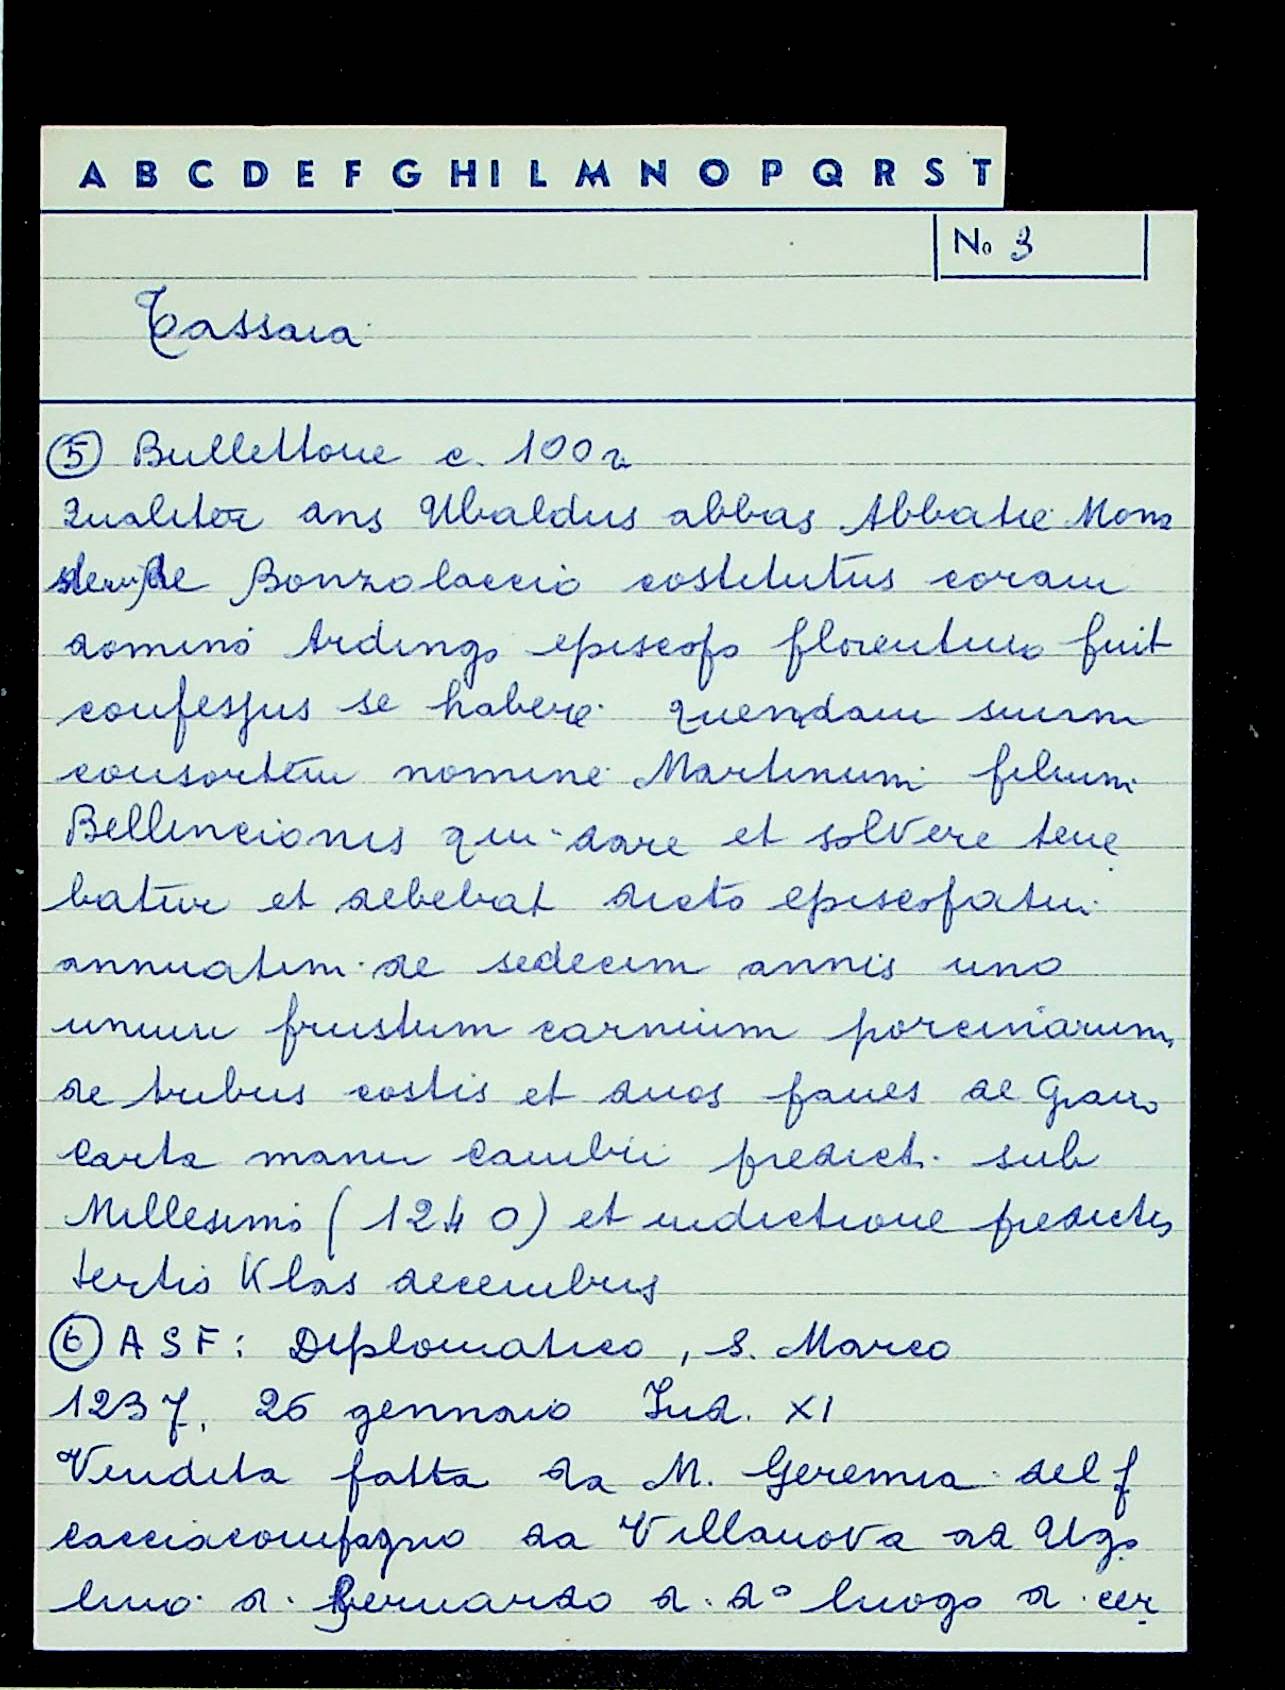 A B C D E F G H I L M N O P Q R S T
No 3
Tassaia
5 Bullettone c. 100 r
Qualiter dns Ubaldus abbas Abbatie Mona
sterii de Bonzolaccio costitutus coram
domino Ardingo episcopo florentino fuit
confessus se habere quendam suum
consortem nomine Martinum filium
Bellincionis qui dare et solvere tene
batur et debebat dicto episcopatui
annuatim de sedecim annis uno
unum frustum carnium porcinarum
de tribus costis et duos panes de Grano
Carta manu Cambii predict. sub
Millesimo (1240) et indictione predictis
tertio Klas decembris
6 ASF: Diplomatico, S. Marco
1237, 26 gennaio Ind. XI
Vendita fatta da M. Geremia del f
Cacciacompagno da Villanova ad Ugo
lino d. Bernardo d. do luogo d. cer